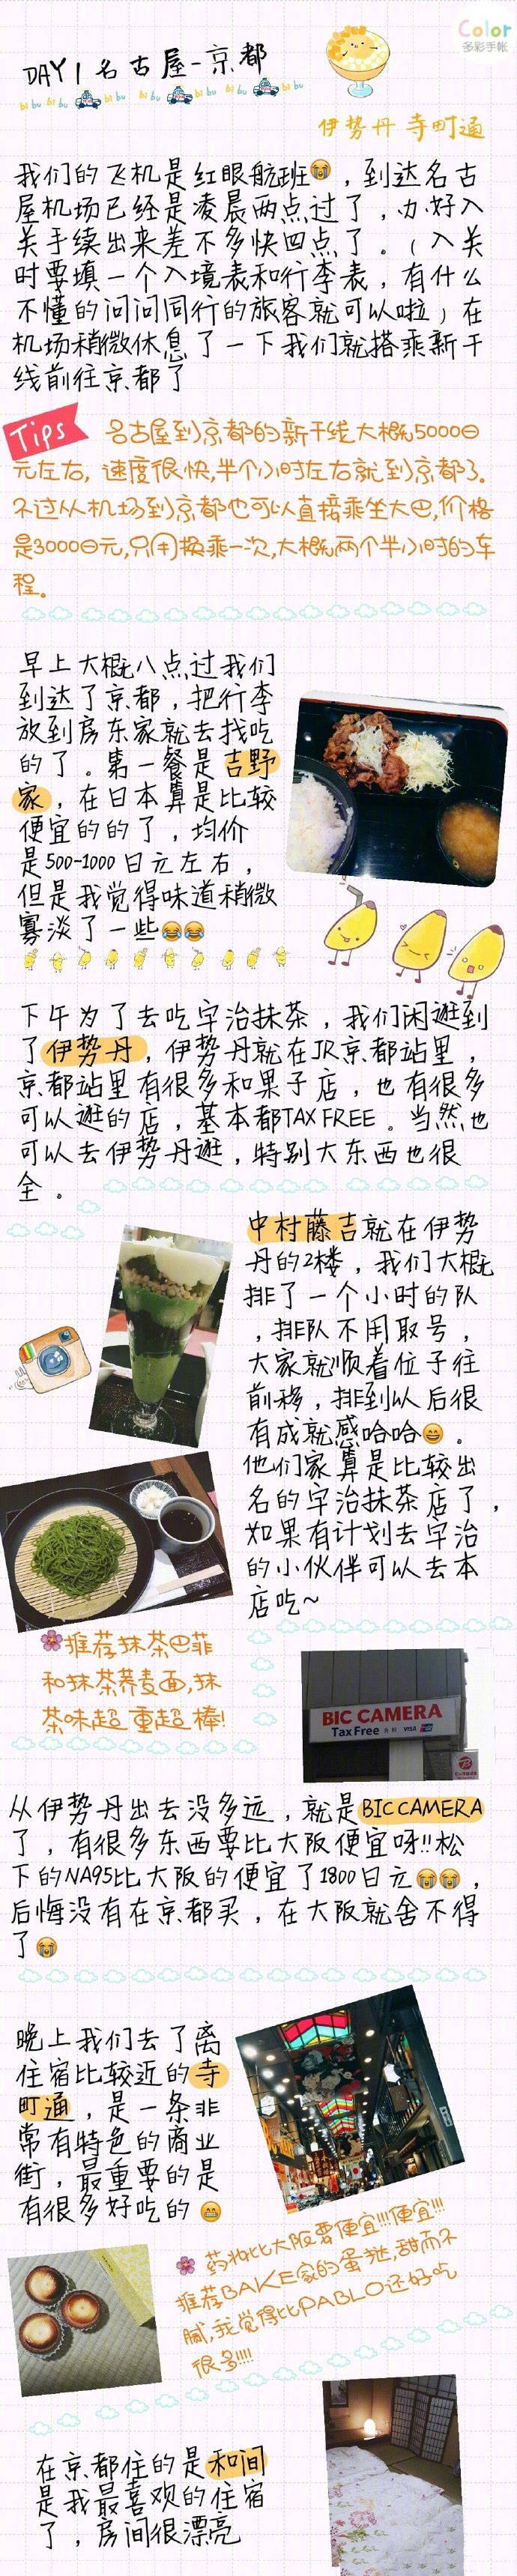 Color
多彩手帐
DAY1名古屋-京都
bi bu bi bu bi bu bi bu bi bu
伊势丹 寺町通
我们的飞机是红眼航班😭，到达名古
屋机场已经是凌晨两点过了，办好入
关手续出来差不多快四点了。（入关
时要填一个入境表和行李表，有什么
不懂的问问同行的旅客就可以啦）在
机场稍微休息了一下我们就搭乘新干
线前往京都了
Tips
名古屋到京都的新干线大概5000日
元左右，速度很快，半个小时左右就到京都了。
不过从机场到京都也可以直接乘坐大巴，价格
是3000日元，只用换乘一次，大概两个半小时的车
程。
早上大概八点过我们
到达了京都，把行李
放到房东家就去找吃
的了。第一餐是吉野
家，在日本算是比较
便宜的的了，均价
是500-1000日元左右，
但是我觉得味道稍微
寡淡了一些😂😂
下午为了去吃宇治抹茶，我们闲逛到
了伊势丹，伊势丹就在JR京都站里，
京都站里有很多和果子店，也有很多
可以逛的店，基本都TAX FREE。当然也
可以去伊势丹逛，特别大东西也很
全。
中村藤吉就在伊势
丹的2楼，我们大概
排了一个小时的队
，排队不用取号，
大家就顺着位子往
前移，排到以后很
有成就感哈哈😄。
他们家算是比较出
名的宇治抹茶店了，
如果有计划去宇治
的小伙伴可以去本
店吃~
🌸推荐抹茶巴菲
和抹茶荞麦面，抹
茶味超重超棒！
BIC CAMERA
Tax Free 免税 VISA
从伊势丹出去没多远，就是BIC CAMERA
了，有很多东西要比大阪便宜呀!!松
下的NA95比大阪的便宜了1800日元😭😭，
后悔没有在京都买，在大阪就舍不得
了😭
晚上我们去了离
住宿比较近的寺
町通，是一条非
常有特色的商业
街，最重要的是
有很多好吃的😁
🌸药妆比大阪要便宜!!!便宜!!!
推荐BAKE家的蛋挞，甜而不
腻，我觉得比PABLO还好吃
很多!!!!
在京都住的是和间
是我最喜欢的住宿
了，房间很漂亮